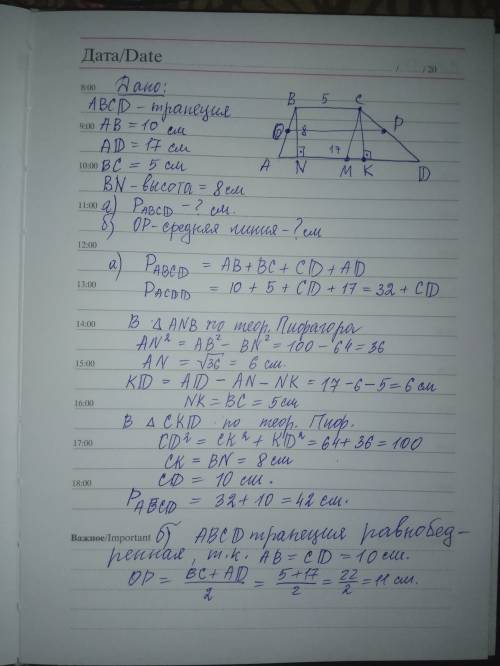 Дата/Date
/ /20
8:00 Дано:
ABCD - трапеция
9:00 AB = 10 см
AD = 17 см
10:00 BC = 5 см
BN - высота = 8 см
11:00 а) P ABCD - ? см.
б) OP - средняя линия - ? см
B 5 C
O 8 P
A N 17 M K D
12:00
а) P ABCD = AB + BC + CD + AD
13:00 P ACDD = 10 + 5 + CD + 17 = 32 + CD
14:00 В △ ANB по теор. Пифагора
AN² = AB² - BN² = 100 - 64 = 36
15:00 AN = √36 = 6 см.
KD = AD - AN - NK = 17 - 6 - 5 = 6 см
16:00 NK = BC = 5 см
В △ CKD по теор. Пиф.
17:00 CD² = CK² + KD² = 64 + 36 = 100
CK = BN = 8 см
18:00 CD = 10 см.
P ABCD = 32 + 10 = 42 см.
Важное/Important б) ABCD трапеция равнобед-
ренная, т.к. AB = CD = 10 см.
OP = (BC + AD)/2 = (5 + 17)/2 = 22/2 = 11 см.